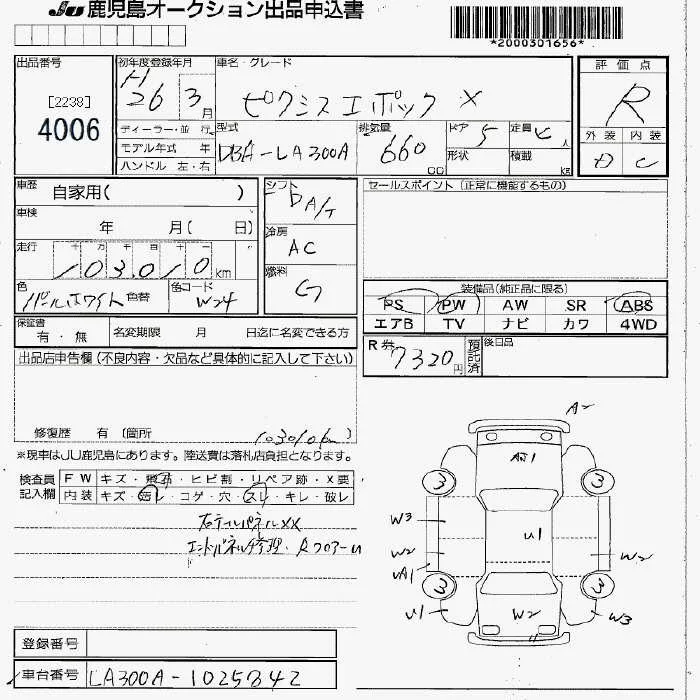 JU 鹿児島オークション出品申込書
*2000301656*
出品番号
[2238]
4006
初年度登録年月
H
26 3月
車名・グレード
ピクシスエポック X
評価点
R
外装 内装
D C
ディーラー・並行
モデル年式 年
ハンドル 左・右
型式
DBA-LA300A
排気量
660 cc
ドア 5
形状
定員 人
積載 kg
車歴
自家用( )
車検
年 月( 日)
走行
十 万 千 百 十 一
103,010 km
色
パールホワイト 色替
色コード
W24
シフト
DA/T
冷房
AC
燃料
G
セールスポイント(正常に機能するもの)
装備品(純正品に限る)
PS PW AW SR ABS
エアB TV ナビ カワ 4WD
保証書
有・無
名変期限 月 日迄に名変できる方
R券 7320円
預託済
後日品
出品店申告欄(不良内容・欠品など具体的に記入して下さい)
修復歴 有 (箇所
103010km
※現車はJU鹿児島にあります。陸送費は落札店負担となります。
検査員記入欄
FW キズ・飛石・ヒビ割・リペア跡・X要
内装 キズ・汚レ・コゲ・穴・スレ・キレ・破レ
右テールパネルXX
エンドパネル修理・Rフロアーu
A2
3 3
W3
U1
W2
W2
UA1
3 3
U1
W2
W3
登録番号
車台番号 LA300A-1025842